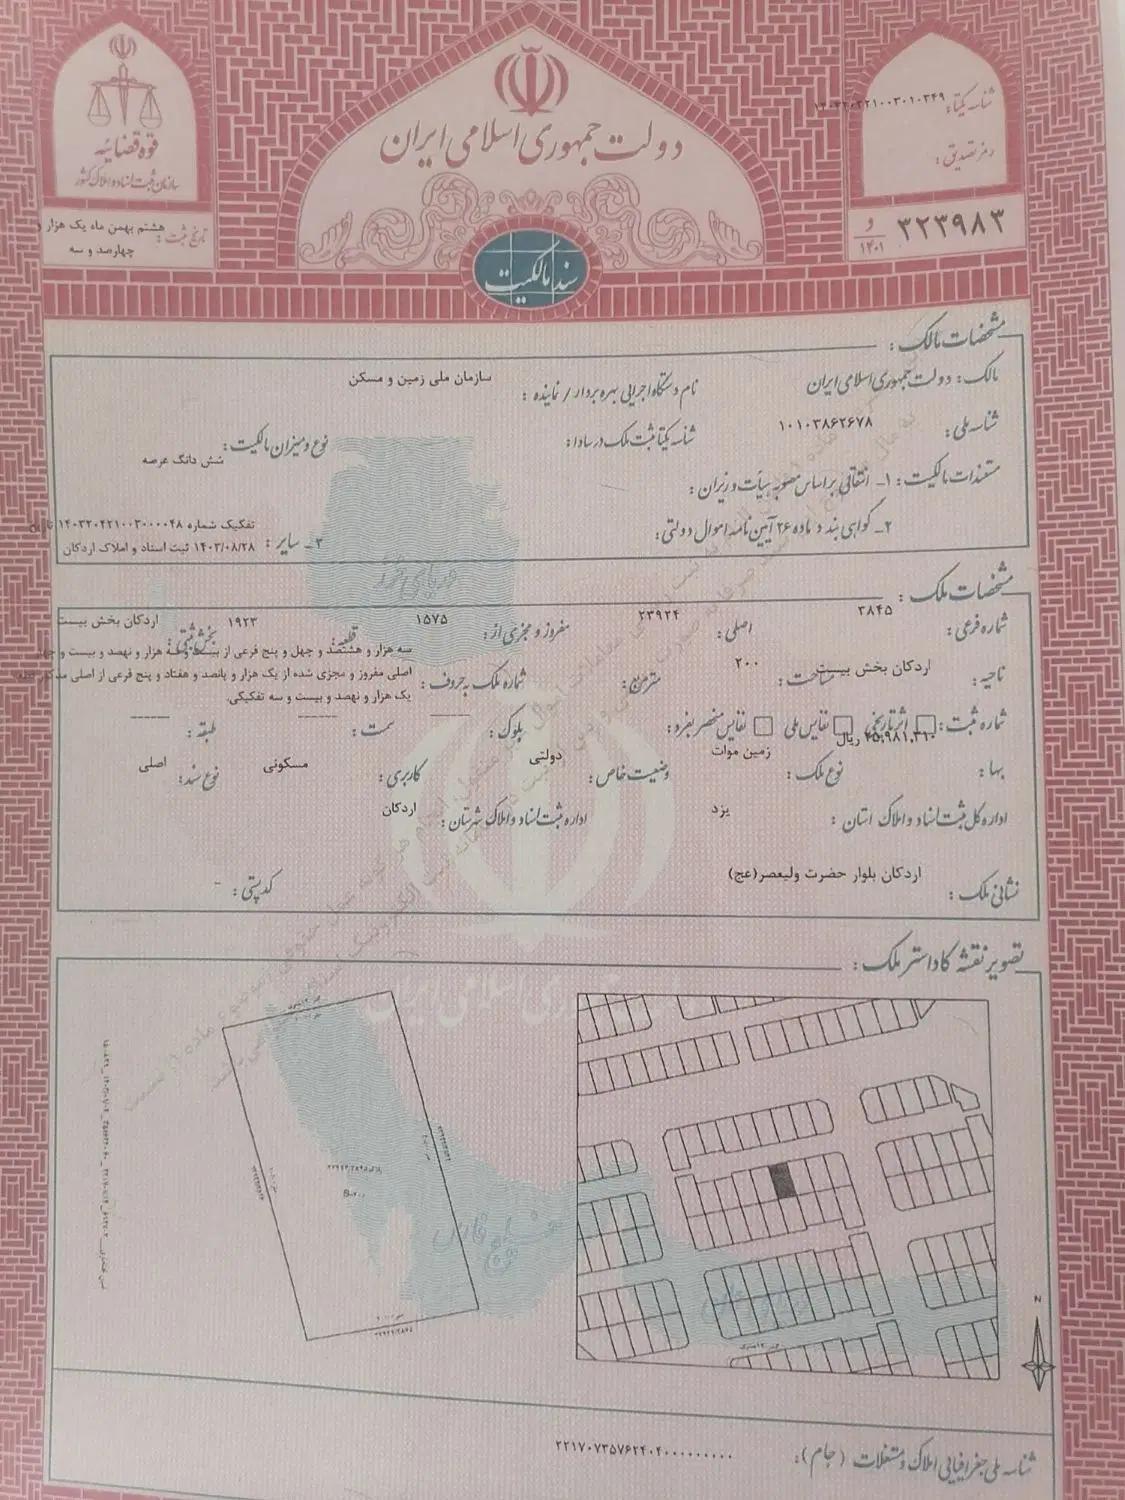 قوه قضائیه
سازمان ثبت اسناد و املاک کشور
تاریخ ثبت: هشتم بهمن ماه یک هزار و
چهارصد و سه
دولت جمهوری اسلامی ایران
سند مالکیت
شناسه یکتا:
رمز تصدیق:
۳۲۳۹۸۳ و ۱۴۰۱
مشخصات مالک:
مالک: دولت جمهوری اسلامی ایران نام دستگاه اجرایی بهره بردار / نماینده: سازمان ملی زمین و مسکن
شناسه ملی: ۱۰۱۰۳۸۶۲۶۷۸ شناسه یکتا ثبت ملک در سادا: نوع و میزان مالکیت: شش دانگ عرصه
مستندات مالکیت: ۱- انتقالی بر اساس مصوبه هیأت وزیران:
۲- گواهی بند د ماده ۲۶ آیین نامه اموال دولتی: ۳- سایر: تفکیک شماره ۱۴۰۳۲۰۴۲۱۰۰۳۰۰۰۰۴۸
۱۴۰۳/۰۸/۲۸ ثبت اسناد و املاک اردکان
مشخصات ملک:
شماره فرعی: ۳۸۴۵ اصلی: ۲۳۹۲۴ مفروز و مجزی از: ۱۵۷۵ قطعه: ۱۹۲۳ بخش ثبتی: اردکان بخش بیست
ناحیه: اردکان بخش بیست مساحت: ۲۰۰ مترمربع: شماره ملک به حروف: سه هزار و هشتصد و چهل و پنج فرعی از بیست و سه هزار و نهصد و بیست و
اصلی مفروز و مجزی شده از یک هزار و پانصد و هفتاد و پنج فرعی از اصلی مذکور
یک هزار و نهصد و بیست و سه تفکیکی.
شماره ثبت: اثر تاریخی نفایس ملی نفایس منحصر بفرد: بلوک: ------ سمت: ------ طبقه: ------
بها: ۲۵,۹۸۱,۳۱۰ ریال نوع ملک: زمین موات وضعیت خاص: دولتی کاربری: مسکونی نوع سند: اصلی
اداره کل ثبت اسناد و املاک استان: یزد اداره ثبت اسناد و املاک شهرستان: اردکان
نشانی ملک: اردکان بلوار حضرت ولیعصر(عج) کدپستی: -
تصویر نقشه کاداستر ملک:
دریای خزر
خلیج فارس
N
شناسه ملی جغرافیایی املاک و مستغلات (جام): ۲۲۱۷۰۷۳۵۷۶۲۴۰۴۰۰۰۰۰۰۰۰۰۰